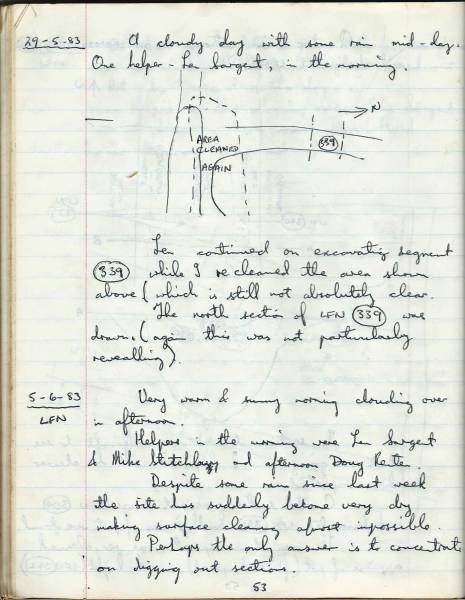 29-5-83 A cloudy day with some rain mid-day.
One helper - Len Sargent, in the morning.
N
AREA
CLEANED
AGAIN
339
Len continued on excavating segment
339 while I recleaned the area shown
above (which is still not absolutely clear.
The north section of LFN 339 was
drawn. (again this was not particularly
revealling).
5-6-83 Very warm & sunny morning clouding over
LFN in afternoon.
Helpers in the morning were Len Sargent
& Mike and afternoon Doug
Despite some rain since last week
the site has suddenly become very dry
making surface cleaning almost impossible.
Perhaps the only answer is to concentrate
on digging out sections.
53